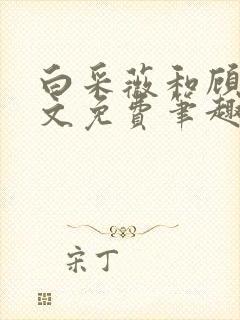 白采薇和顾
文免费笔趣
宋丁